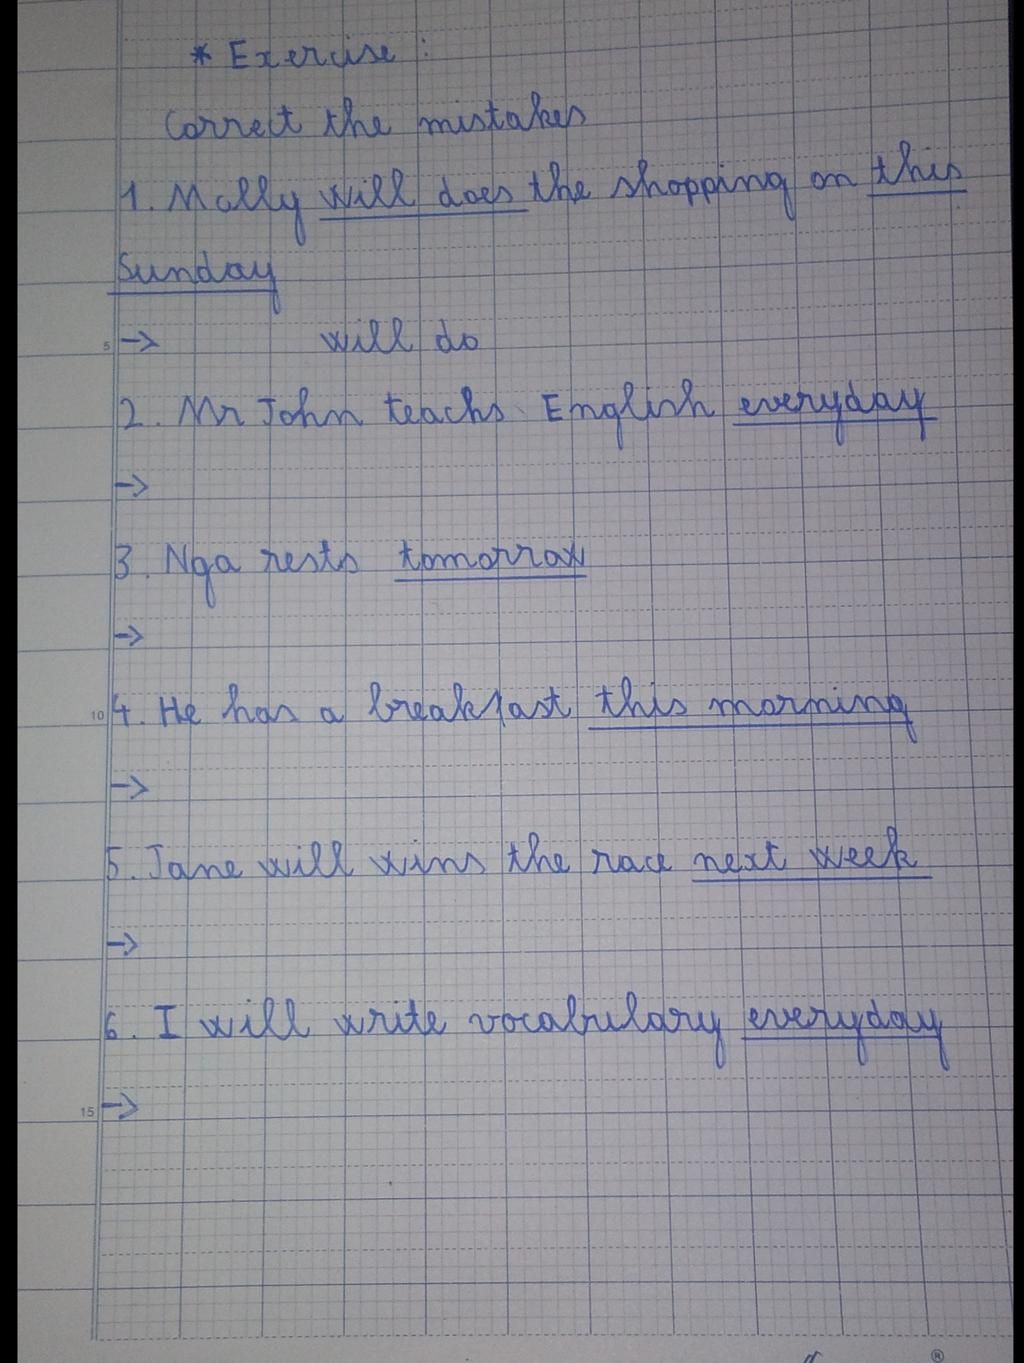 * Exercise :
Correct the mistakes
1. Molly will does the shopping on this
Sunday
5 → will do
2. Mr John teachs English everyday
→
3. Nga rests tomorrow
→
10 4. He has a breakfast this morning
→
5. Jane will wins the race next week
→
6. I will write vocabulary everyday
15 →
®